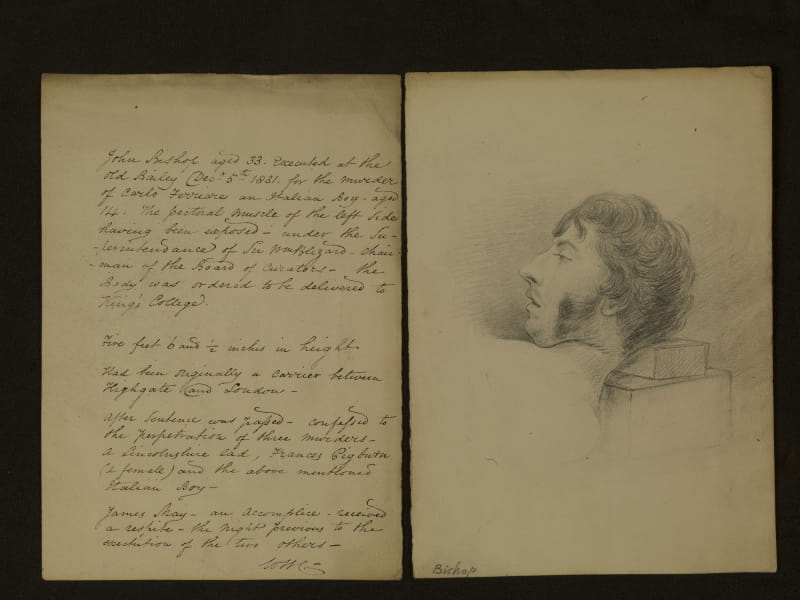 John Bishop aged 33. Executed at the
Old Bailey (Decr 5th 1831. for the murder
of Carlo Ferriare an Italian Boy - aged
14. The pectoral muscle of the left side
having been exposed - under the Su-
-perintendance of Sir Wm Blizard - Chair-
-man of the Board of Curators - the
Body was ordered to be delivered to
King's College.
Five feet 6 and ½ inches in height.
Had been originally a carrier between
Highgate and London -
After Sentence was passed - confessed to
the perpetration of three murders -
a Lincolnshire lad, Frances Pigburn
(a female) and the above mentioned
Italian Boy -
James May - an accomplice - received
a respite - the night previous to the
execution of the two others -
Bishop